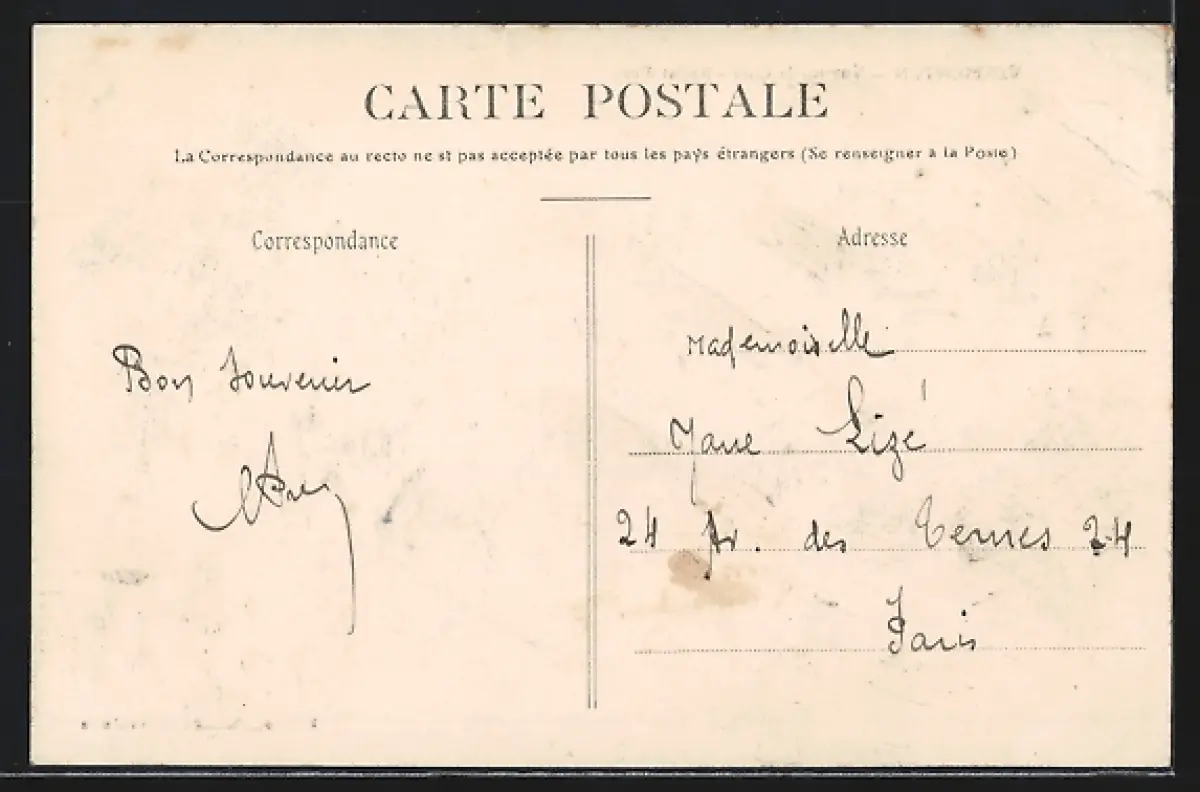 CARTE POSTALE
La Correspondance au recto ne st pas acceptée par tous les pays étrangers (Se renseigner à la Poste)
Correspondance
Adresse
Bon Souvenir
Mademoiselle
Lizé
24 Av. des Ternes 24
Paris